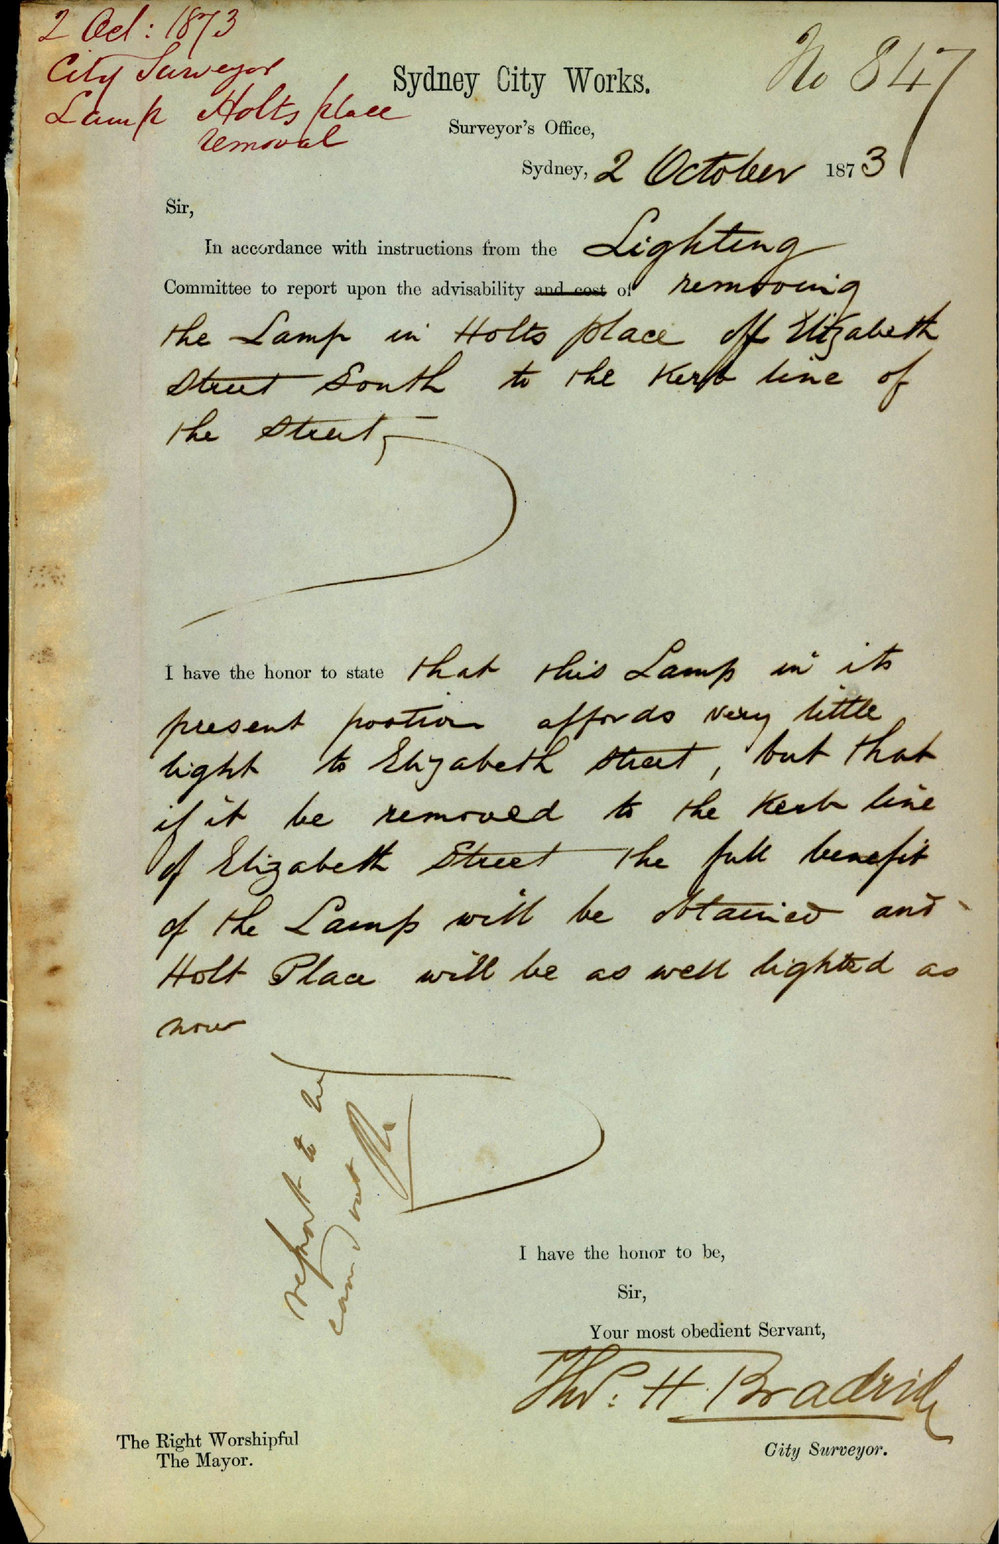 2 Oct: 1873
City Surveyor
Lamp Holts place
removal
No 847
Sydney City Works.
Surveyor's Office,
Sydney, 2 October 1873
Sir,
In accordance with instructions from the Lighting
Committee to report upon the advisability and cost of removing
the Lamp in Holts place off Elizabeth
Street South to the Kerb line of
the Street,
I have the honor to state that this Lamp in its
present position affords very little
light to Elizabeth Street, but that
if it be removed to the Kerb line
of Elizabeth Street the full benefit
of the Lamp will be obtained and
Holt Place will be as well lighted as
now
report to be
out
I have the honor to be,
Sir,
Your most obedient Servant,
Thos: H. Bradridge
City Surveyor.
The Right Worshipful
The Mayor.